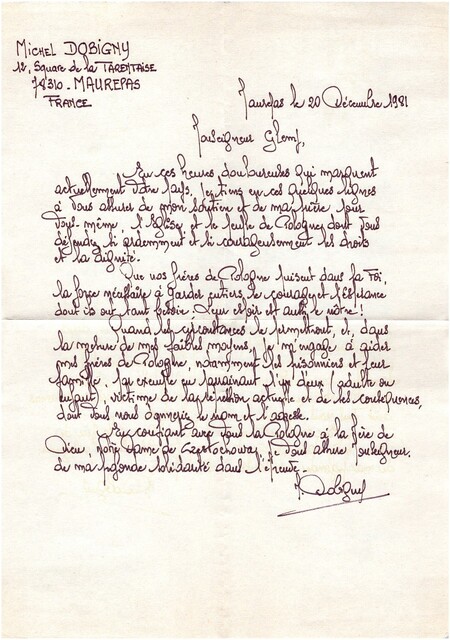 MICHEL DOBIGNY
12, Square de la TARENTAISE
78310 - MAUREPAS
FRANCE
Maurepas le 20 Décembre 1981
Monseigneur Glemp,
En ces heures douloureuses qui marquent
actuellement votre pays, je tiens en ces quelques lignes
à vous assurer de mon soutien et de ma prière pour
vous-même, l'Eglise et le peuple de Pologne dont vous
défendez si ardemment et si courageusement les droits
et la dignité.
Que vos frères de Pologne puisent dans la Foi,
la force nécessaire à garder entiers, le courage et l'Espérance
dont ils ont tant besoin. Leur espoir est aussi le nôtre !
Quand les circonstances le permettront, et, dans
la mesure de mes faibles moyens, je m'engage à aider
mes frères de Pologne, notamment les prisonniers et leur
famille, par exemple en parrainant l'un d'eux (adulte ou
enfant), victime de la répression actuelle et de ses conséquences,
dont vous nous donneriez le nom et l'adresse.
En confiant avec vous la Pologne à la Mère de
Dieu, Notre Dame de Czestochowa, je vous assure Monseigneur,
de ma profonde solidarité dans l'épreuve.
M. Dobigny